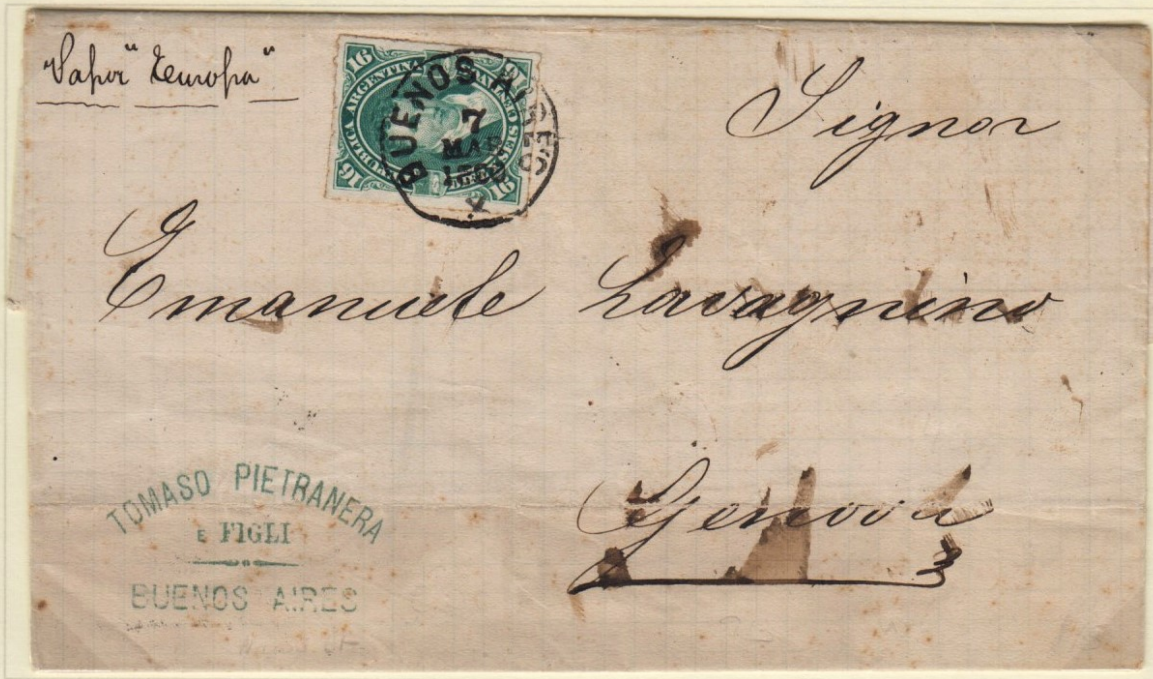 Vapor "Europa"
16 REPUBLICA ARGENTINA 16
16 16
BUENOS AIRES
7
MAR
Signor
Emanuele Lavagnino
Genova
TOMASO PIETRANERA
E FIGLI
BUENOS AIRES